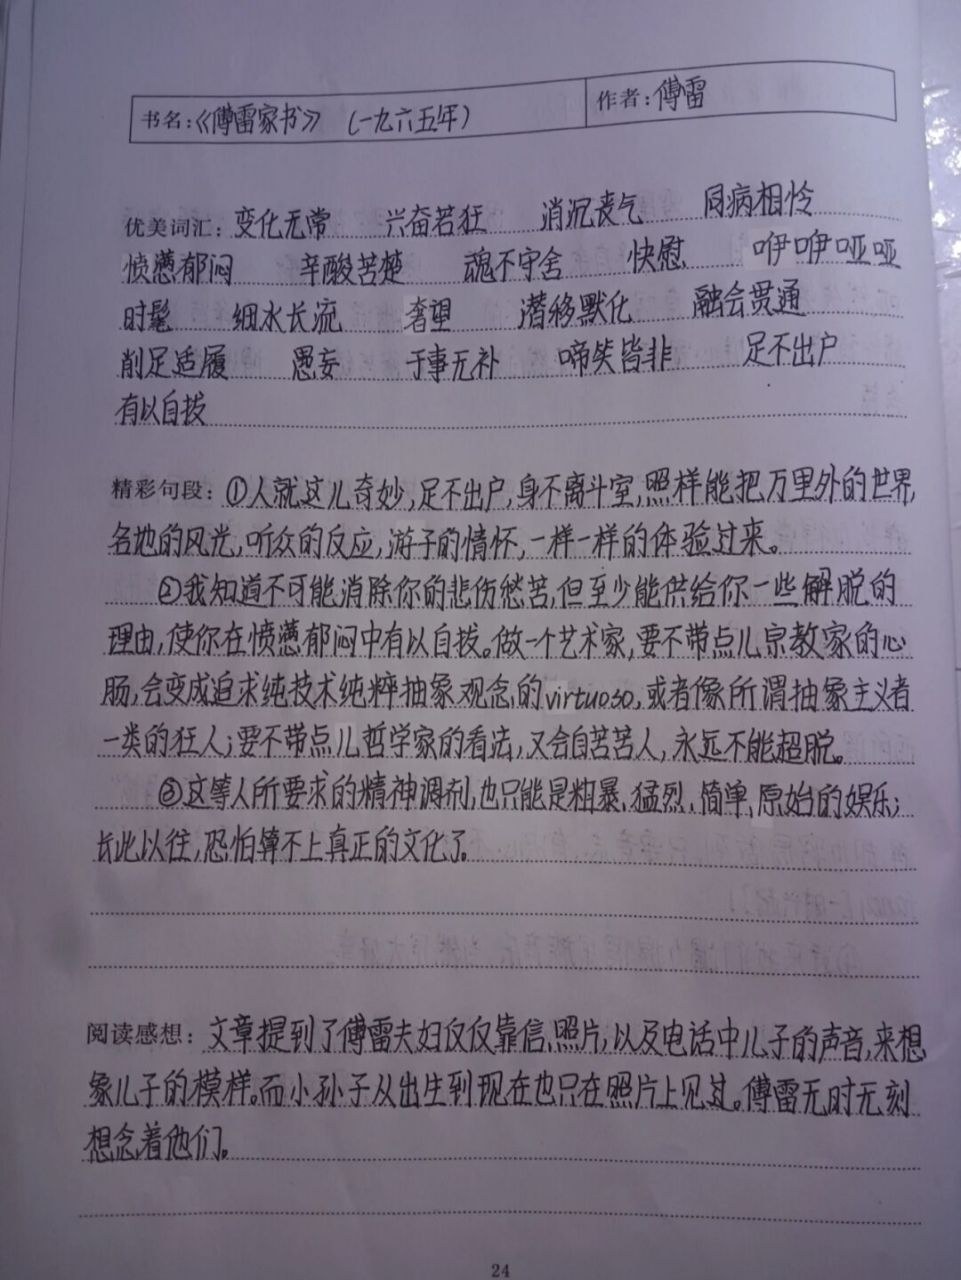 书名:《傅雷家书》 (一九六五年) 作者:傅雷
优美词汇: 变化无常 兴奋若狂 消沉丧气 同病相怜
愤懑郁闷 辛酸苦楚 魂不守舍 快慰 咿咿哑哑
时髦 细水长流 奢望 潜移默化 融会贯通
削足适履 愚妄 于事无补 啼笑皆非 足不出户
有以自拔
精彩句段: ①人就这儿奇妙,足不出户,身不离斗室,照样能把万里外的世界,
各地的风光,听众的反应,游子的情怀,一样一样的体验过来。
②我知道不可能消除你的悲伤愁苦,但至少能供给你一些解脱的
理由,使你在愤懑郁闷中有以自拔。做一个艺术家,要不带点儿宗教家的心
肠,会变成追求纯技术纯粹抽象观念的virtuoso,或者像所谓抽象主义者
一类的狂人;要不带点儿哲学家的看法,又会自苦苦人,永远不能超脱。
③这等人所要求的精神调剂,也只能是粗暴、猛烈、简单、原始的娱乐;
长此以往,恐怕算不上真正的文化了。
阅读感想: 文章提到了傅雷夫妇仅仅靠信、照片,以及电话中儿子的声音,来想
象儿子的模样。而小孙子从出生到现在也只在照片上见过。傅雷无时无刻
想念着他们。
24